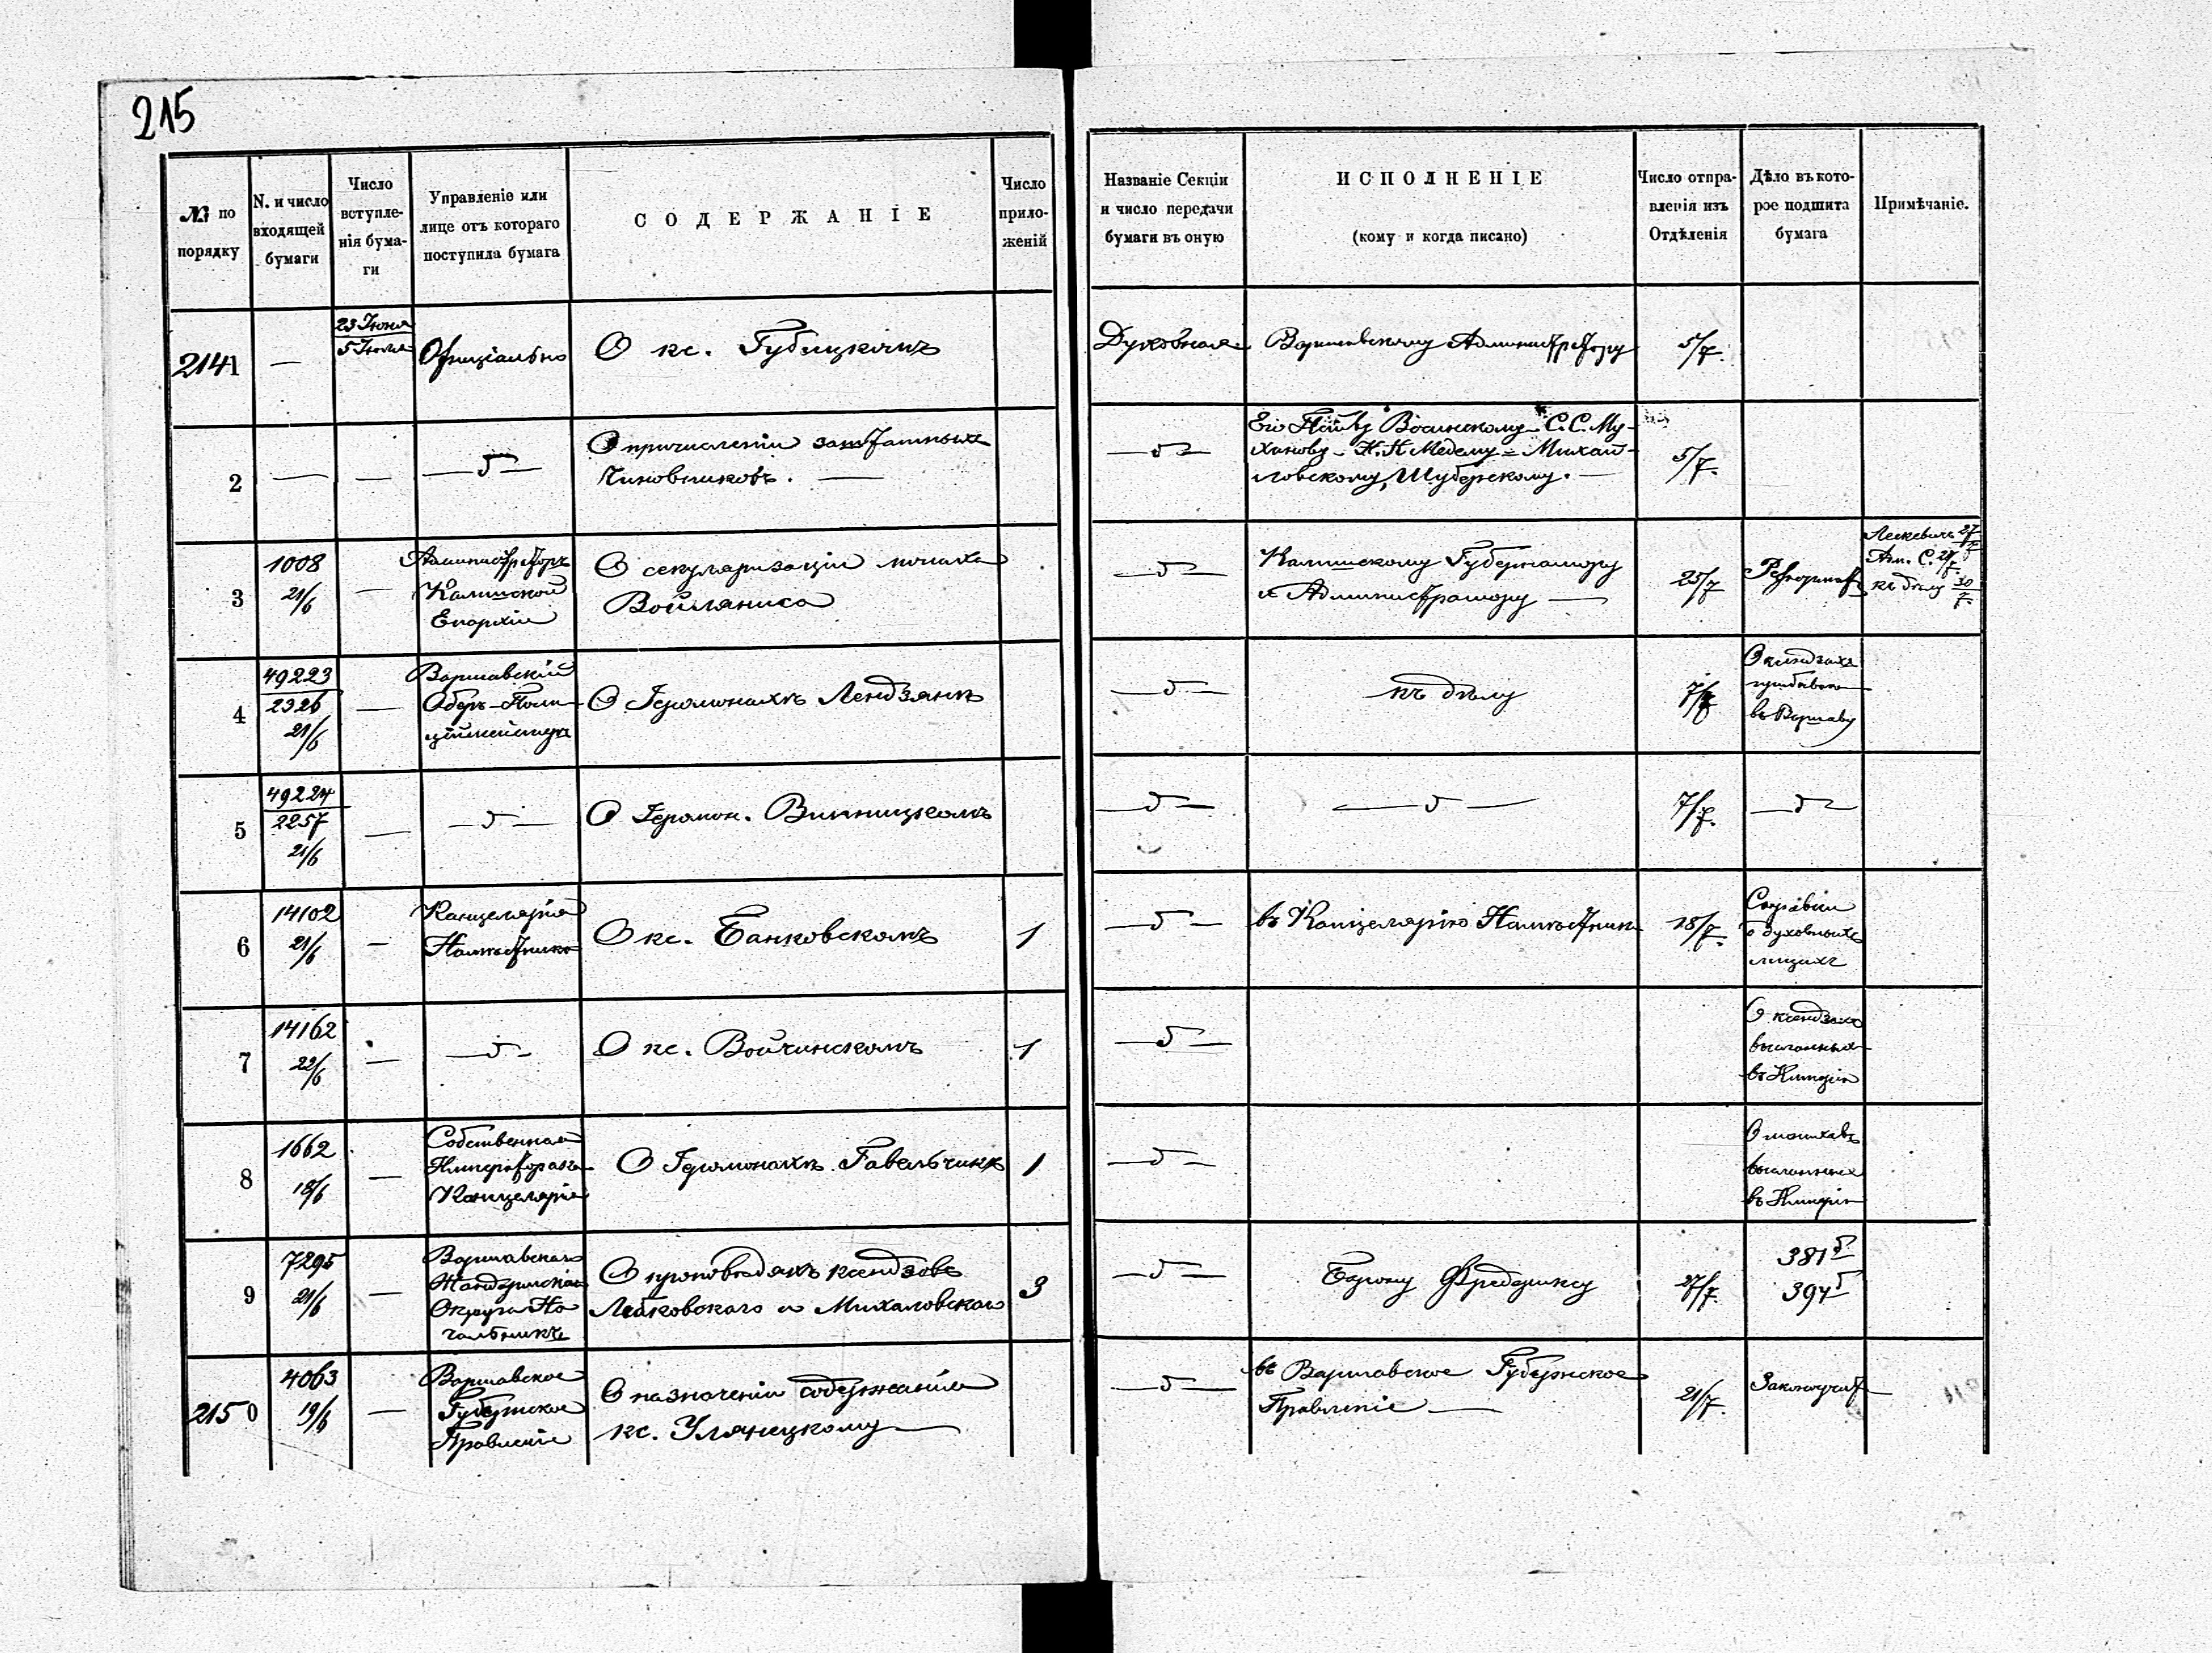 215
№ по порядку
N. и число входящей бумаги
Число вступле-
нія бума-
ги
Управленіе или
лице отъ котораго
поступила бумага
СОДЕРЖАНІЕ
Число
прило-
женій
Названіе Секціи
и число передачи
бумаги въ оную
ИСПОЛНЕНІЕ
(кому и когда писано)
Число отпра-
вленія изъ
Отдѣленія
Дѣло въ кото-
рое подшита
бумага
Примѣчаніе.
2141
—
23 Іюня
5 Іюля
Офиціально
О кс. Губицкомъ
Духовная
Варшавскому Администратору
5/7.
2
—
—
—"—
О причисленіи заштатныхъ
Чиновниковъ. —
—"—
Воинскому С. С. Му-
ханову - Н. Н. Медему - Михай-
ловскому, Шуберскому. —
5/7.
3
1008
21/6
—
Администраторъ
Калишской
Епархіи
О секуляризаціи монаха
Войшляниса
—"—
Калишскому Губернатору
и Администратору —
25/7
Реформат
Лескевичъ 27/7
Ап. С. 29/7.
къ дѣлу 30/7.
4
49223
2326
21/6
—
Варшавскій
Оберъ-Поли-
ціймейстеръ
О Іеромонахѣ Лендзянѣ
—"—
къ дѣлу
7/7
О ксендзахъ
прибывш
въ Варшаву
5
49224
2257
21/6
—
—"—
О Іеромон. Винницкомъ
—"—
—"—
7/7.
—"—
6
14102
21/6
—
Канцелярія
Намѣстника
О кс. Банковскомъ
1
—"—
въ Канцелярію Намѣстника
18/7.
Справки
о духовныхъ
лицахъ
7
14162
22/6
—
—"—
О кс. Войчинскомъ
1
—"—
О ксендзахъ
высланныхъ
въ Имперію
8
1662
18/6
—
Собственная
Императорская
Канцелярія
О Іеромонахѣ Гавельчикѣ
1
—"—
О монахахъ
высланныхъ
въ Имперію
9
7295
21/6
—
Варшавскаго
Жандармскаго
Округа На
чальникъ
О проповѣдяхъ ксендзовъ
Лабковскаго и Михаловскаго
3
—"—
Барону Фредериксу
27/7.
381
394
2150
4063
19/6
—
Варшавское
Губернское
Правленіе
О назначеніи содержанія
кс. Улянецкому —
—"—
въ Варшавское Губернское
Правленіе —
21/7.
Законоучит